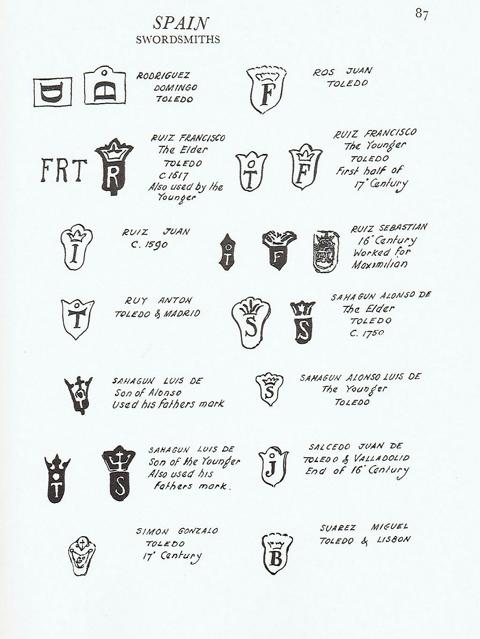 87
SPAIN
SWORDSMITHS
D D
RODRIGUEZ
DOMINGO
TOLEDO
F
ROS JUAN
TOLEDO
FRT R
RUIZ FRANCISCO
The Elder
TOLEDO
C.1617
Also used by the
Younger
T F
RUIZ FRANCISCO
The Younger
TOLEDO
First half of
17° Century
I
RUIZ JUAN
C. 1590
T F
RUIZ SEBASTIAN
16° Century
Worked for
Maximilian
T
RUY ANTON
TOLEDO & MADRID
S S
SAHAGUN ALONSO DE
The Elder
TOLEDO
C. 1750
SAHAGUN LUIS DE
Son of Alonso
Used his fathers mark
S
SAHAGUN ALONSO LUIS DE
The Younger
TOLEDO
T S
SAHAGUN LUIS DE
Son of the Younger
Also used his
fathers mark.
J
SALCEDO JUAN DE
TOLEDO & VALLADOLID
End of 16° Century
SIMON GONZALO
TOLEDO
17° Century
B
SUAREZ MIGUEL
TOLEDO & LISBON